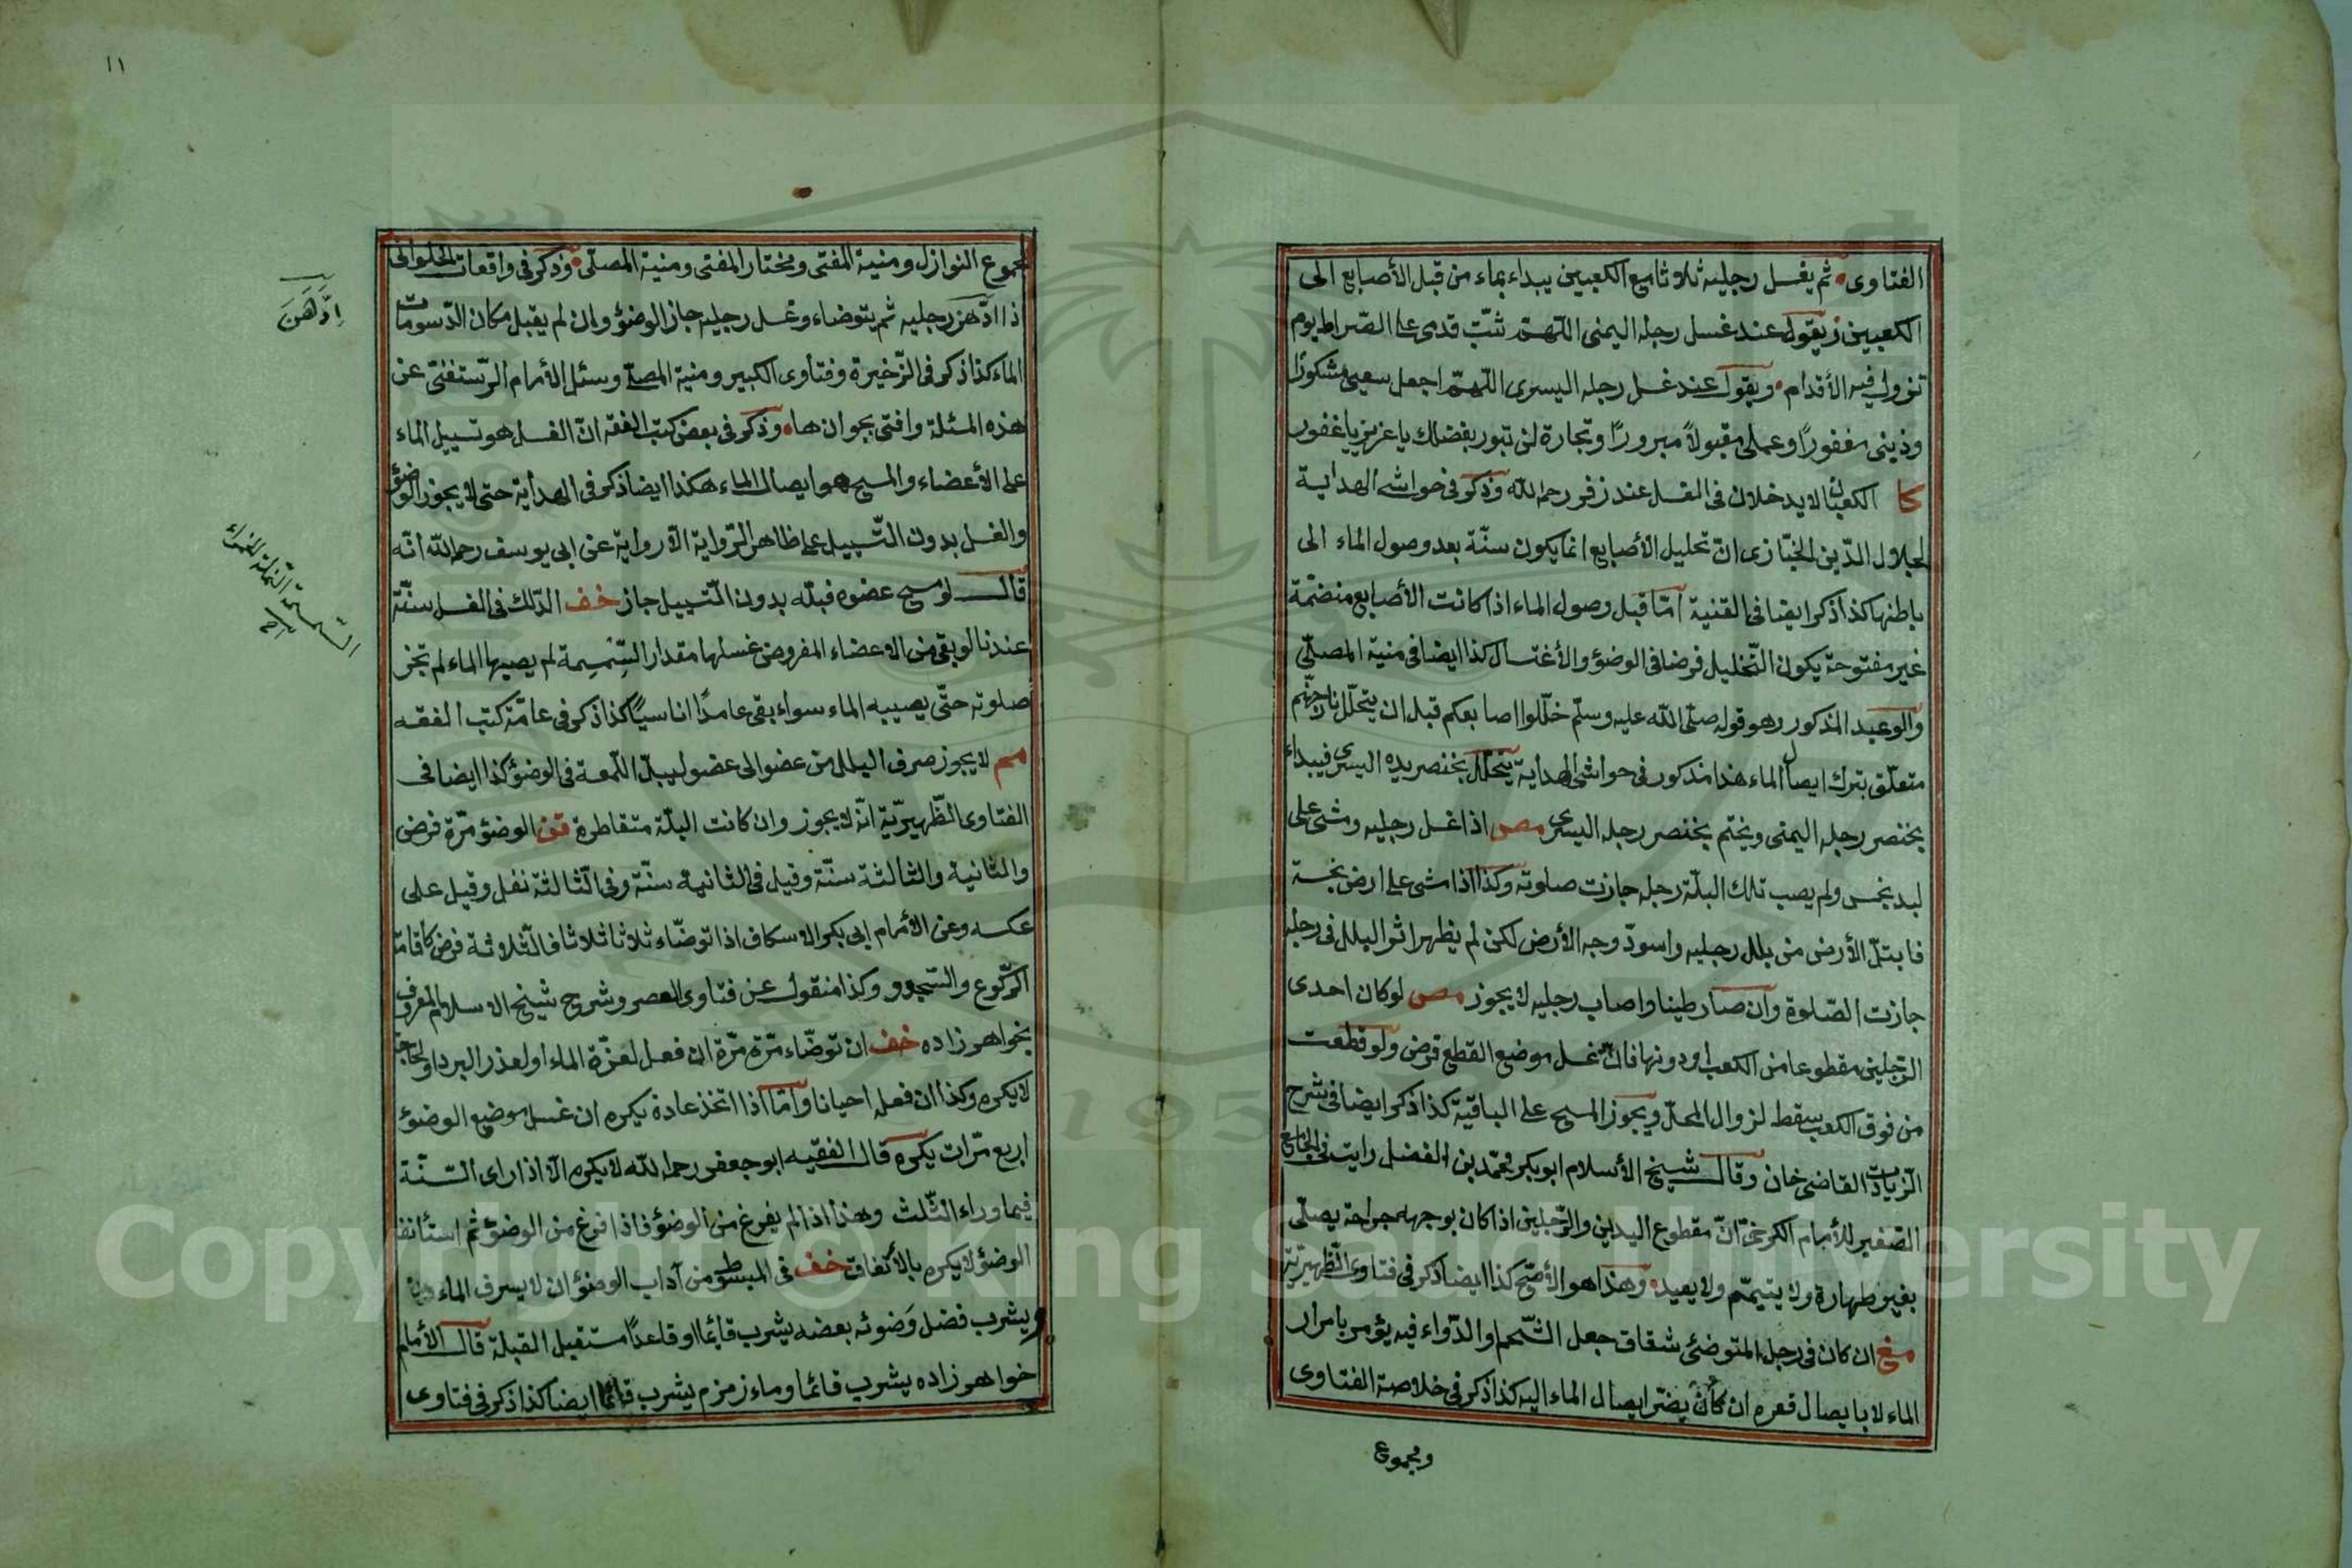 الفتاوى ثم يغسل رجليه ثلاثا مع الكعبين يبداء بماء من قبل الأصابع الى
الكعبين ويقول عند غسل رجله اليمنى اللهمّ ثبّت قدمى على الصّراط يوم
تزول فيه الأقدام ويقول عند غسل رجله اليسرى اللهمّ اجعل سعيى مشكورًا
وذينى مغفورًا وعملى مقبولاً مبرورًا وتجارة لن تبور بفضلك يا عزيز يا غفور
كا الكعبان لا يدخلان فى الغسل عند زفر رحمه الله وذكر فى حواشى الهداية
لجلال الدّين الخبّازى انّ تخليل الأصابع انما يكون سنّة بعد وصول الماء الى
باطنها كذا ذكر ايضا فى القنية امّا قبل وصول الماء اذا كانت الأصابع منضمّة
غير مفتوحة يكون التّخليل فرضا فى الوضؤ والأغتسال كذا ايضا فى منية المصلّى
والوعيد المذكور وهو قوله صلّى اللّه عليه وسلّم خلّلوا اصابعكم قبل ان يتخلّل نار جهنّم
متعلّق بترك ايصال الماء هذا مذكور فى حواشى الهداية يتخلّل بخنصر يده اليسرى فيبداء
بخنصر رجله اليمنى ويختم بخنصر رجله اليسرى مص اذا غسل رجليه ومشى على
لبد نجس ولم يصب تلك البلّة رجله جازت صلوته وكذا اذا مشى على ارض نجسة
فابتلّ الأرض من بلل رجليه واسودّ وجه الأرض لكن لم يظهر اثر البلل فى رجله
جازت الصّلوة وان صار طينا واصاب رجليه لا يجوز مص لو كان احدى
الرّجلين مقطوعا من الكعب او دونها فانّ غسل موضع القطع فرض ولو قطعت
من فوق الكعب سقط لزوال المحلّ ويجوز المسح على الباقية كذا ذكر ايضا فى شرح
الزّيادات القاضى خان وقال شيخ الأسلام ابو بكر محمّد بن الفضل رايت فى الجامع
الصّغير للأمام الكرخىّ انّ مقطوع اليدين والرّجلين اذا كان بوجهه جراحة يصلّى
بغير طهارة ولا يتيمّم ولا يعيد وهذا هو الأصحّ كذا ايضا ذكر فى فتاوى الظّهيريّة
مغ ان كان فى رجل المتوضّئ شقاق جعل الشّحم او الدّواء فيه يؤمر بامرار
الماء لا بايصال قعره ان كان يضرّ ايصال الماء اليه كذا ذكر فى خلاصة الفتاوى
ومجموع
١١
مجموع النوازل ومنية المفتى ومختار المفتى ومنية المصلّى وذكر فى واقعات الحلوانى
اذا ادّهن رجليه ثم يتوضاء وغسل رجليه جاز الوضؤ وان لم يقبل مكان الدّسومات
الماء كذا ذكر فى الذّخيرة وفتاوى الكبير ومنية المصلّى وسئل الأمام الرّستفغنى عن
هذه المسئلة وافتى بجوازها وذكر فى بعض كتب الفقه انّ الغسل هو تسييل الماء
على الأعضاء والمسح هو ايصال الماء هكذا ايضا ذكر فى الهداية حتى لا يجوز الوضؤ
والغسل بدون التّسييل على ظاهر الرّواية الّا رواية عن ابى يوسف رحمه اللّه انّه
قال لو مسح عضوه فبلّه بدون التّسييل جاز خف الدّلك فى الغسل سنّة
عندنا لو بقى من الاعضاء المفروض غسلها مقدار السّمسمة لم يصبها الماء لم تجز
صلوته حتّى يصيبه الماء سواء بقى عامدًا ا ناسيًا كذا ذكر فى عامّة كتب الفقه
مم لا يجوز صرف البلل من عضو الى عضو ليبلّ اللّمعة فى الوضؤ كذا ايضا فى
الفتاوى الظّهيريّة انّه لا يجوز وان كانت البلّة متقاطرة قن الوضؤ مرّة فرض
والثانية والثالثة سنّة وقيل فى الثانية سنّة وفى الثالثة نفل وقيل على
عكسه وعن الأمام ابى بكر الاسكاف اذا توضّاء ثلاثا ثلاثا فالثلاثة فرض كاقامة
الرّكوع والسّجود وكذا منقول عن فتاوى العصر وشروح شيخ الاسلام المعروف
بخواهر زاده خف ان توضّاء مرّة مرّة ان فعل لعزّة الماء او لعذر البرد او لحاجة
لا يكره وكذا ان فعله احيانا وامّا اذا اتخذ عادة يكره ان غسل موضع الوضؤ
اربع مرّات يكره قال الفقيه ابو جعفر رحمه اللّه لا يكره الّا اذا راى السّنّة
فيما وراء الثّلث وهذا اذا لم يفرغ من الوضؤ فاذا فرغ من الوضؤ ثم استأنف
الوضؤ لا يكره بالأتفاق خف فى المبسوط من آداب الوضؤ ان لا يسرف الماء
ويشرب فضل وَضوئه بعضه يشرب قائما او قاعدًا مستقبل القبلة قال الأمام
خواهر زاده يشرب قائما وماء زمزم يشرب قائما ايضا كذا ذكر فى فتاوى
اِدَّهَنَ